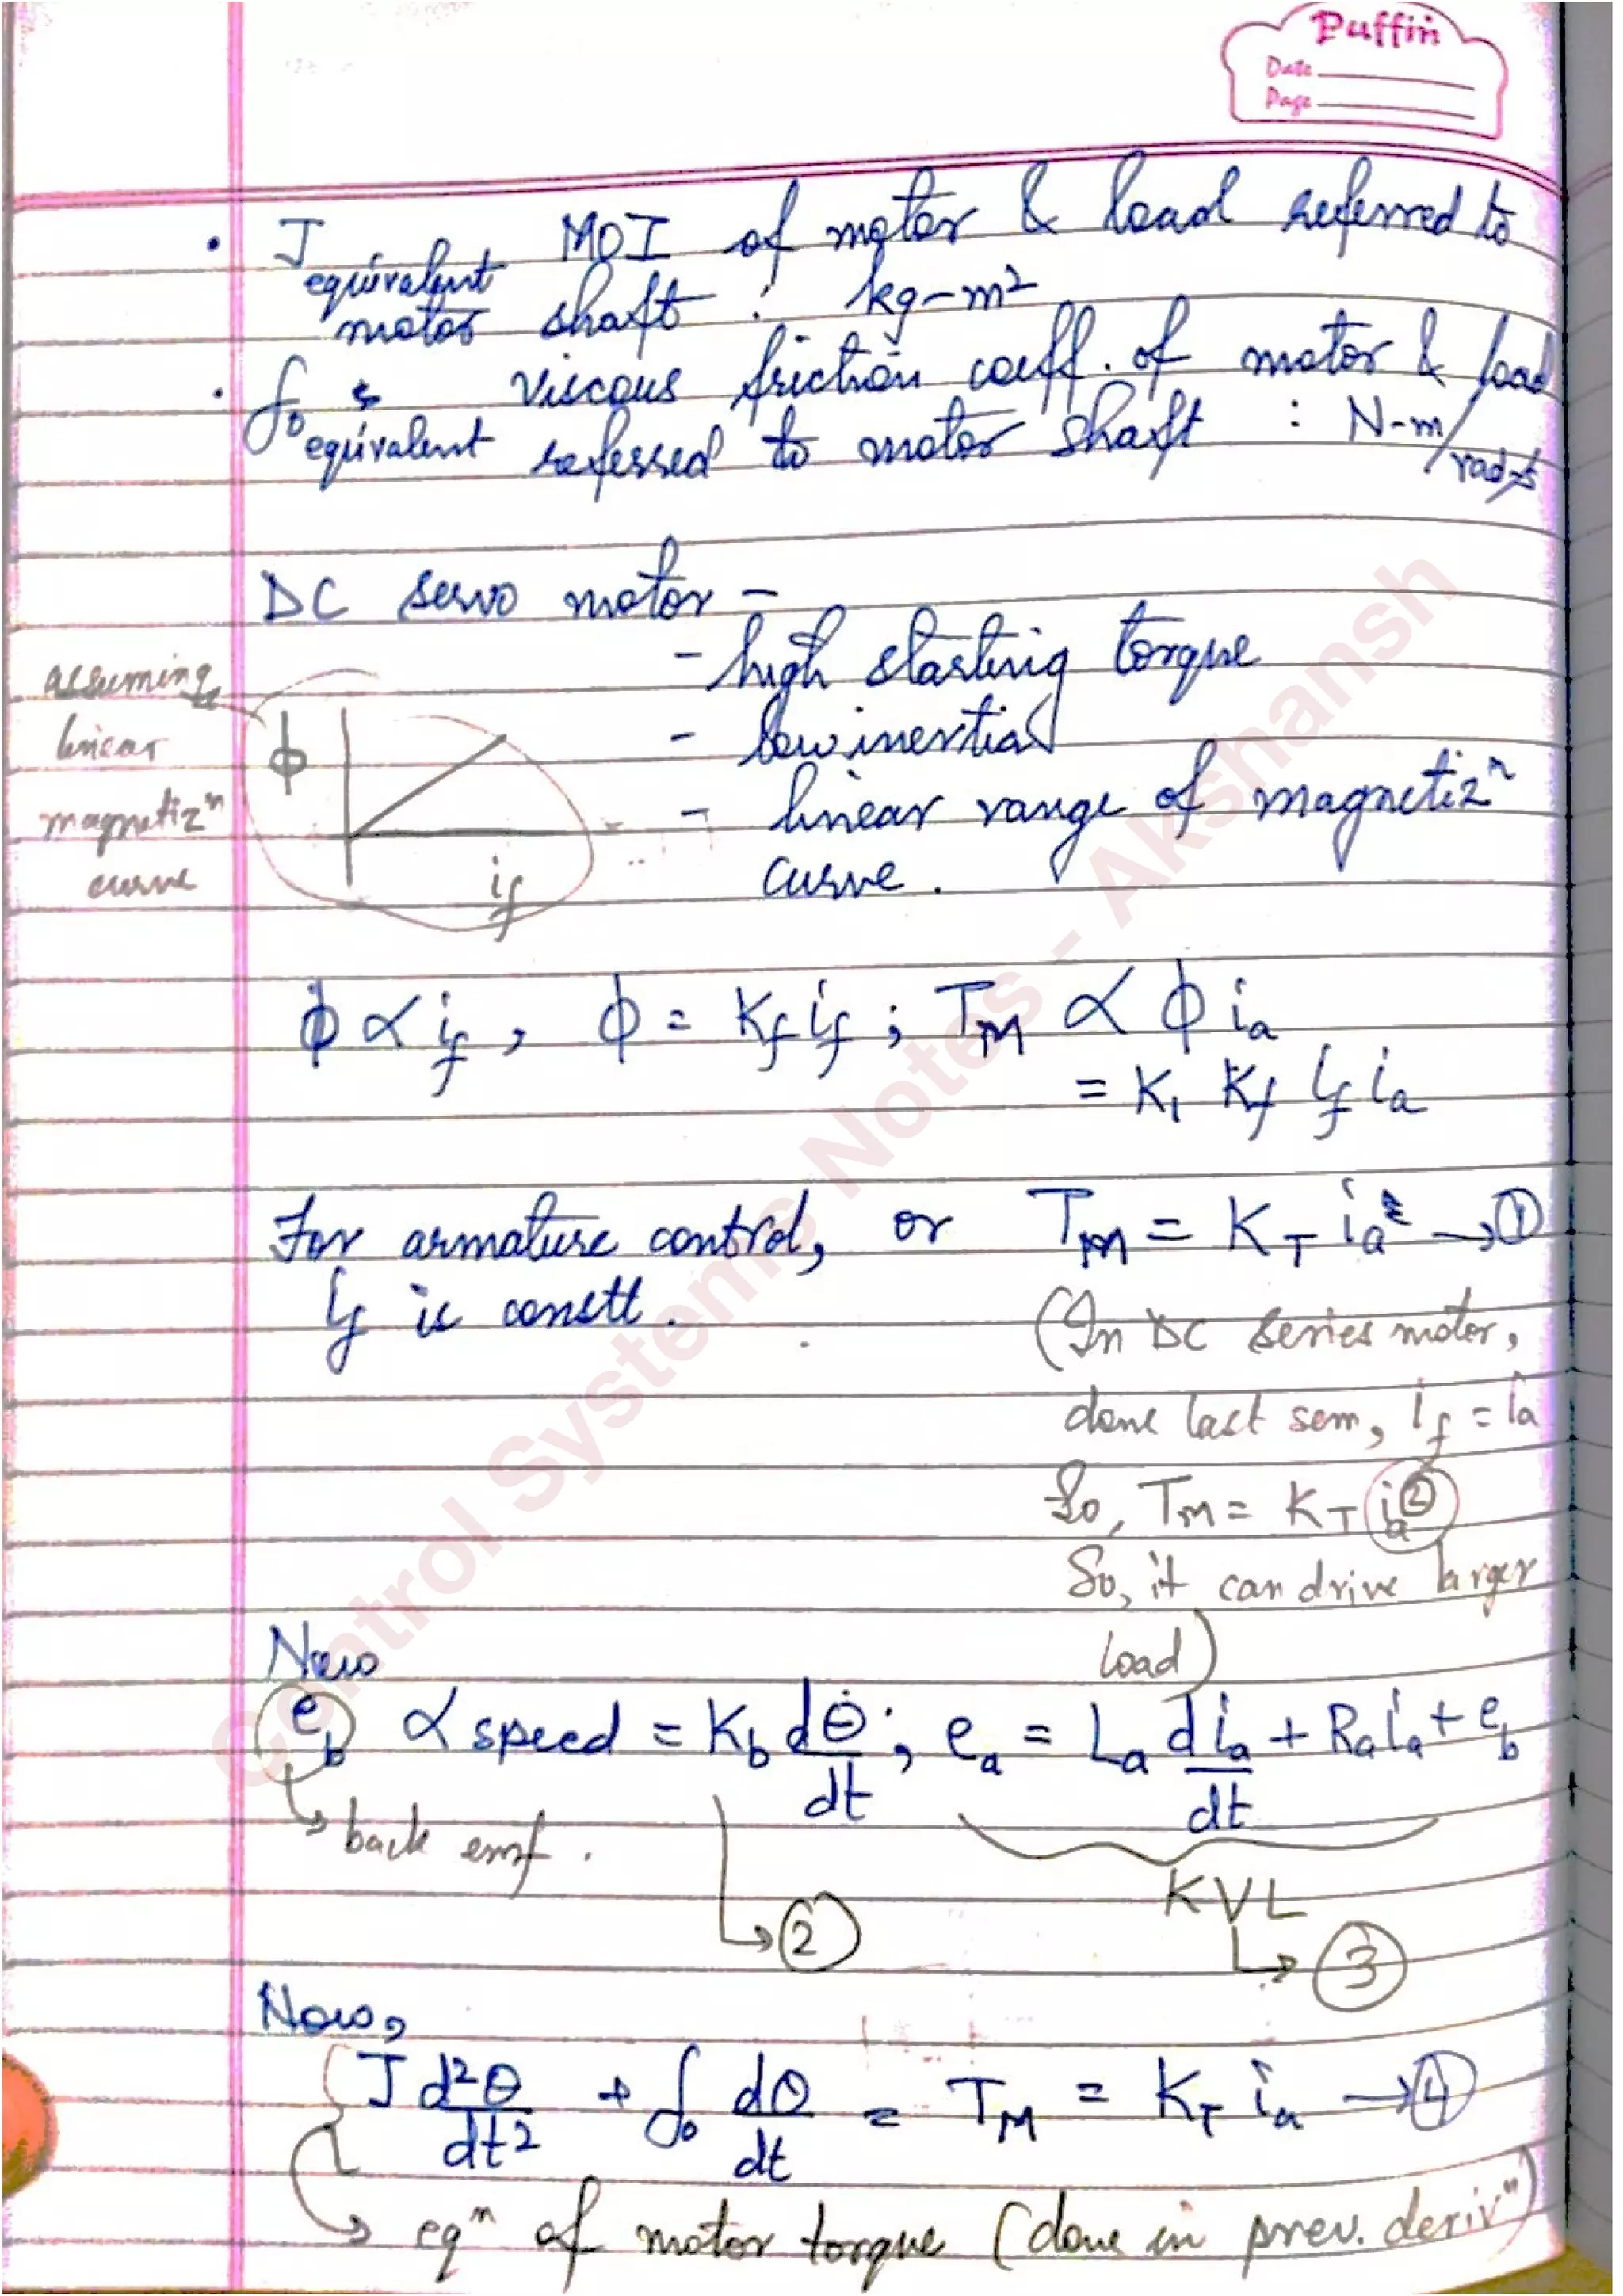 Puffin
Date
Page
• J equivalent MOI of motor & load referred to
motor shaft : kg-m²
• f₀ equivalent viscous friction coeff. of motor & load
referred to motor shaft : N-m/rad/s
DC servo motor -
- high starting torque
- low inertia
- linear range of magnetizⁿ
curve.
assuming
linear
magnetizⁿ
curve
ϕ
i_f
ϕ ∝ i_f , ϕ = K_f i_f ; T_M ∝ ϕ i_a
= K₁ K_f i_f i_a
For armature control, or T_M = K_T i_a → ①
i_f is constt.
(In DC series motor,
done last sem, i_f = i_a
So, T_M = K_T i_a²
So, it can drive larger
load)
Now
e_b ∝ speed = K_b dθ/dt ; e_a = L_a di_a/dt + R_a i_a + e_b
back emf.
KVL
②
③
Now,
J d²θ/dt² + f₀ dθ/dt = T_M = K_T i_a → ④
eqⁿ of motor torque (done in prev. derivⁿ)
Control Systems Notes - Akshansh